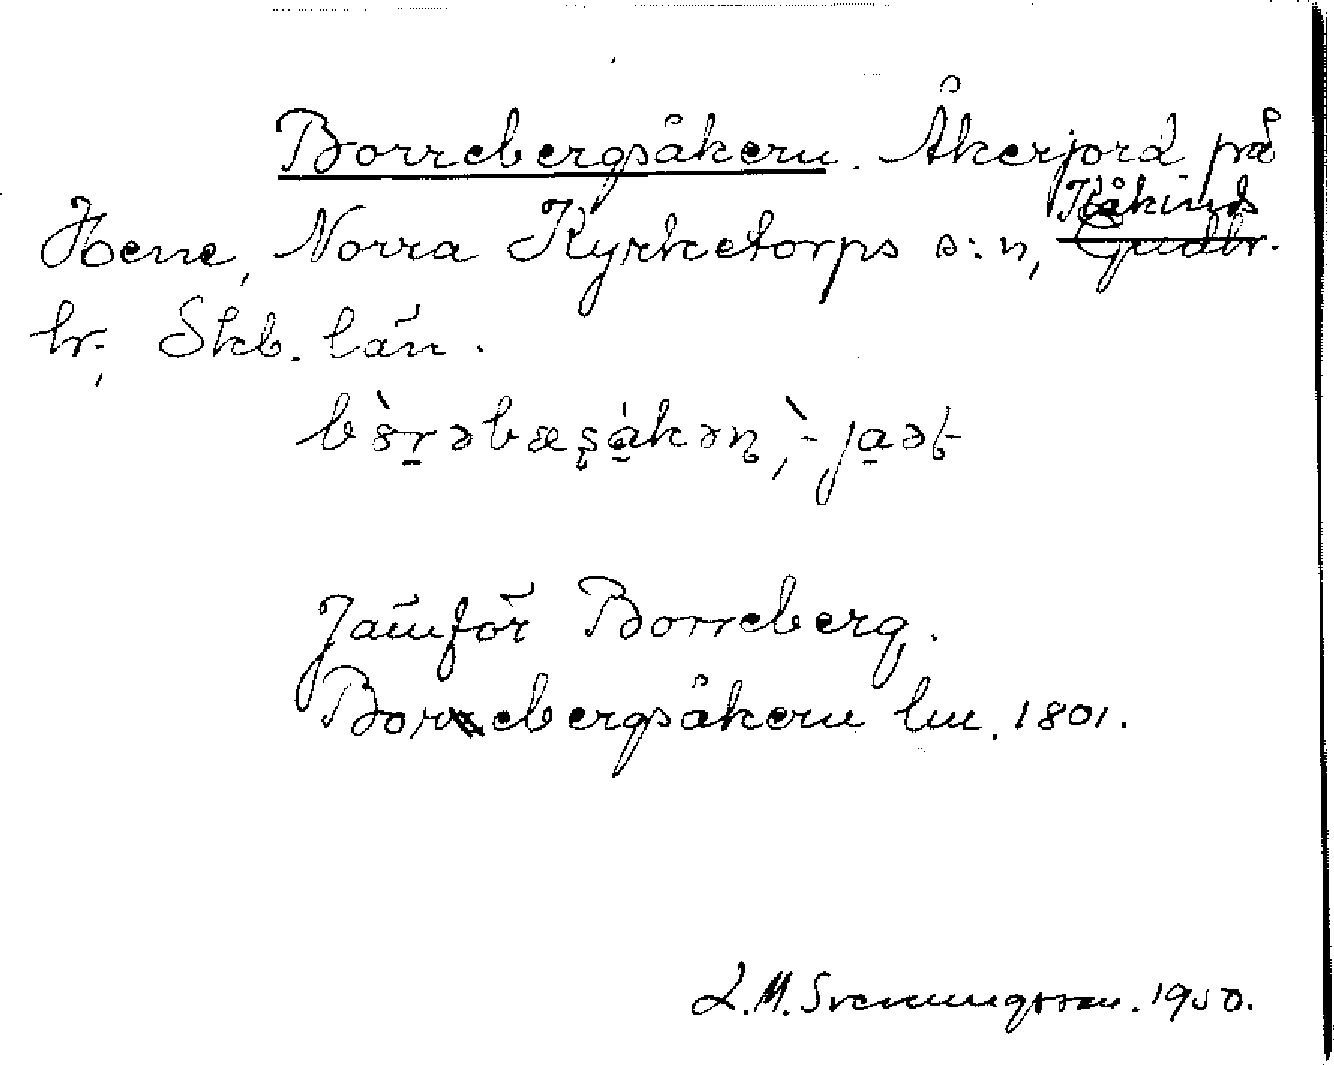 Borrebergsåkern. Åkerjord på
Hene, Norra Kyrketorps s:n, Kåkinds Gudh.
hr., Skb. län.
Jämför Borreberg.
Borrebergsåkern lm. 1801.
L.M. Svenungsson. 1950.